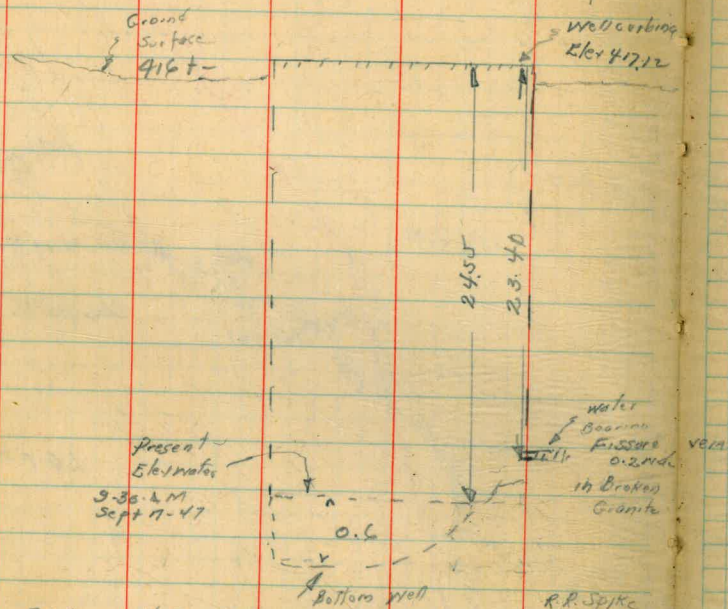 Ground
Surface
416 + -
Well curbing
Elev 417.12
24.55
23.40
Water
Bearing
Fissure vein
0.2 wide
in Broken
Granite
Present
Elev water
9-30 AM
Sept 17-47
0.6
Bottom Well
R.R. Spike